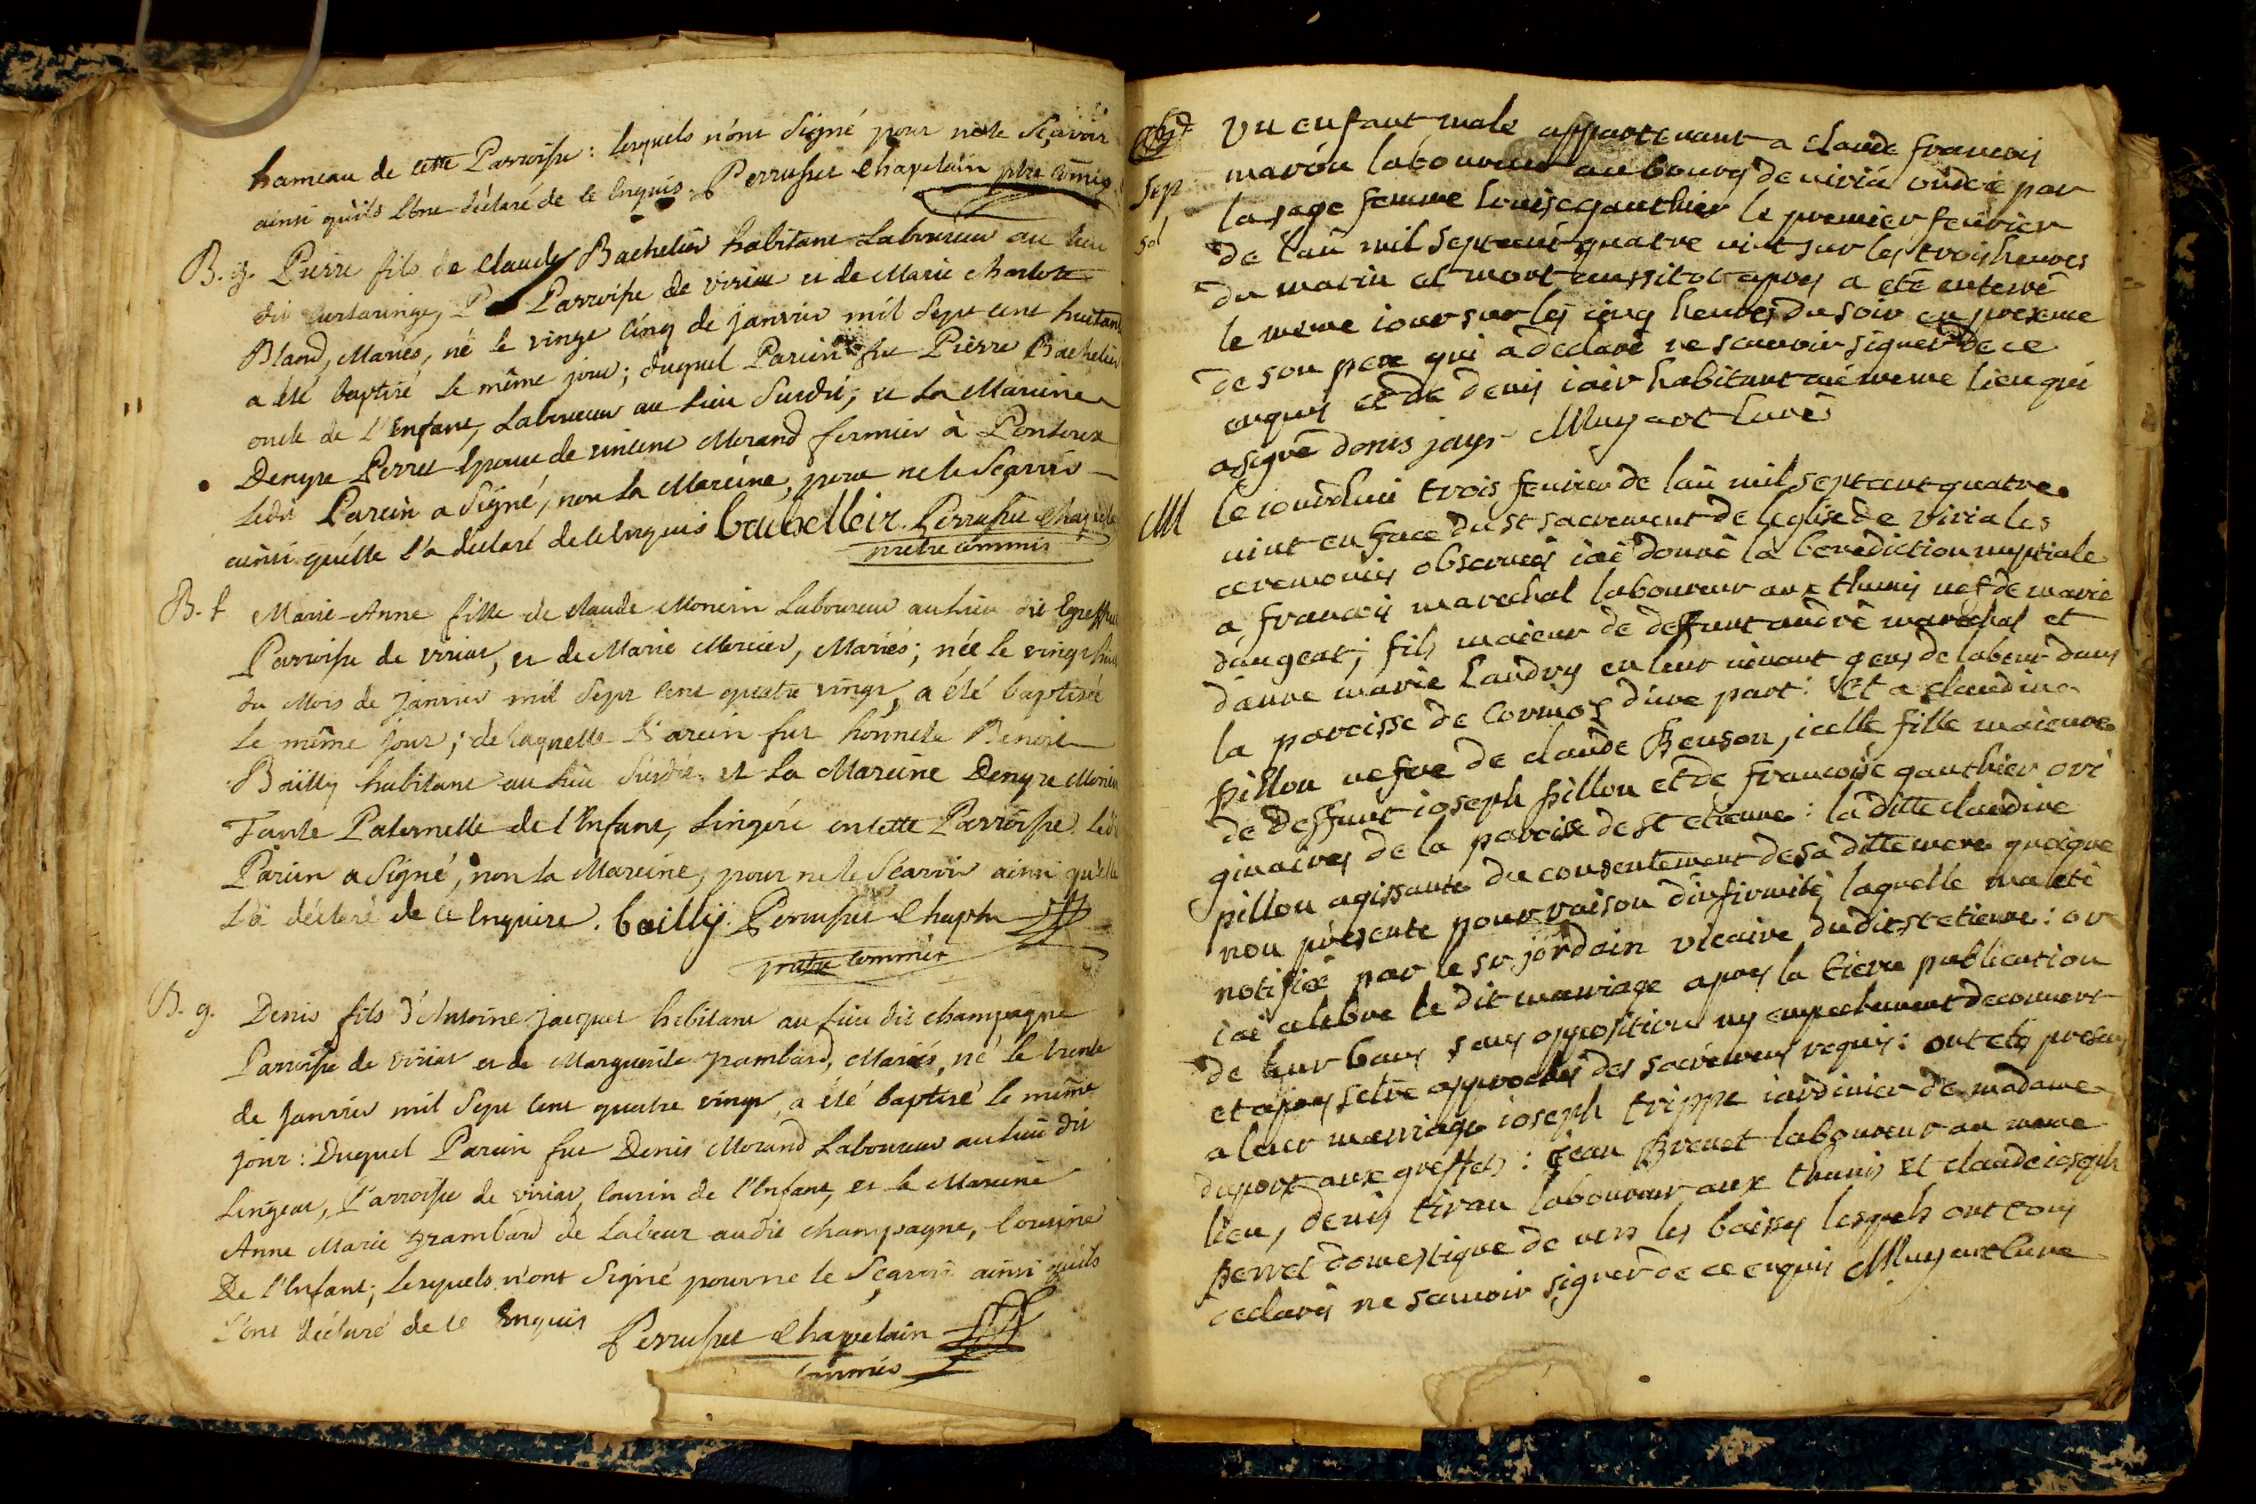 hameau de cette Parroisse : lesquels n'ont Signé pour ne le Sçavoir
ainsi qu'ils l'ont déclaré de ce Enquis. Perrusset Chapelain ptre commis
B. g. Pierre fils de Claude Bachelier habitant Laboureur au lieu
dit Curtaringe, Parroisse de viriat et de Marie Charlotte
Bland, Mariés, né le vingt cinq de janvier mil Sept cent huitant
a été baptisé le même jour ; duquel Parein fut Pierre Bachelier
oncle de l'Enfant, Laboureur au lieu Susdit, et la Mareine
Denyse Perret épouse de vincent Morand fermier à Pontoux
Ledit Parein a Signé, non la Mareine, pour ne le Sçavoir
ainsi qu'elle l'a déclaré de ce Enquis bachelleir. Perrusset Chapele
prêtre commis
B. f. Marie-Anne fille de claude Monein Laboureur au lieu dit
Parroisse de viriat, et de Marie Mercier, Mariés ; née le vingt huit
du Mois de Janvier mil Sept Cent quatre vingt, a été baptisée
le même jour ; de laquelle Parein fut honnete Benoit
Bailly habitant au lieu Susdit, et la Mareine Denyse Monein
Tante Paternelle de l'Enfant, Lingere en cette Parroisse. Ledit
Parein a Signé, non la Mareine, pour ne le Scavoir ainsi qu'elle
l'a déclaré de ce Enquise. bailly. Perrusset Chapln
prêtre commis
B. g. Denis fils d'Antoine jacquet habitant au lieu dit champagne
Parroisse de viriat et de Marguerite grambard, Mariés, né le trente
de Janvier mil Sept Cent quatre vingt, a été baptisé le même
jour : Duquel Parein fut Denis Morand Laboureur au lieu dit
Lingeat, Parroisse de viriat, Cousin de l'Enfant, et la Mareine
Anne Marie grambard de Labeur audit champagne, Cousine
De l'Enfant ; lesquels n'ont Signé pour ne le Sçavoir ainsi qu'ils
l'ont déclaré de ce Enquis Perrusset Chapelain
commis
Un enfant male appartenant a claude francois
Sep
maron laboureur au bourg de viria ondoié par
la sage femme louise gauthier le premier fevrier
sol
de l'an mil sept cent quatre vint sur les trois heures
du matin et mort aussitot apres a eté enterré
le meme iour sur les cinq heures du soir en presence
de son pere qui a declaré ne scauoir signer de ce
enquis et de denis iair habitant au meme lieu qui
a signé denis jayr Muyart Curé
M le iourdhui trois fevrier de l'an mil sept cent quatre
vint en face du st sacrement de l'eglise de viria les
ceremonies observees iai donné la benediction nuptiale
a francois marechal laboureur aux thuny nef de marie
dangeat, fils maieur de deffunt andré marechal et
d'anne marie Landry en leur vivant gens de labeur dans
la paroisse de Cormos d'une part : Et a claudine
pillon vefve de claude Benson, icelle fille maieure
de deffunt ioseph pillon et de francoise gauthier ori
ginaires de la paroisse de st etienne : la ditte claudine
pillon agissante du consentement de sa ditte mere quoique
non presente pour raison d'infirmité, laquelle m'a eté
notifié par le sr jordain vicaire dudit st etienne : or
iai celebré le dit mariage apres la tierce publication
de leur bans sans opposition ny empechement decouvert
et apres setre approchés des sacremens requis : ont eté presens
a leur mariage ioseph trippe iardinier de madame
duport aux greffets : jean Brevet laboureur au meme
lieu, denis tivan laboureur aux thunis et claude ioseph
perret domestique de vers les boissy lesquels ont tous
declarés ne sauoir signer de ce enquis Muyart Curé